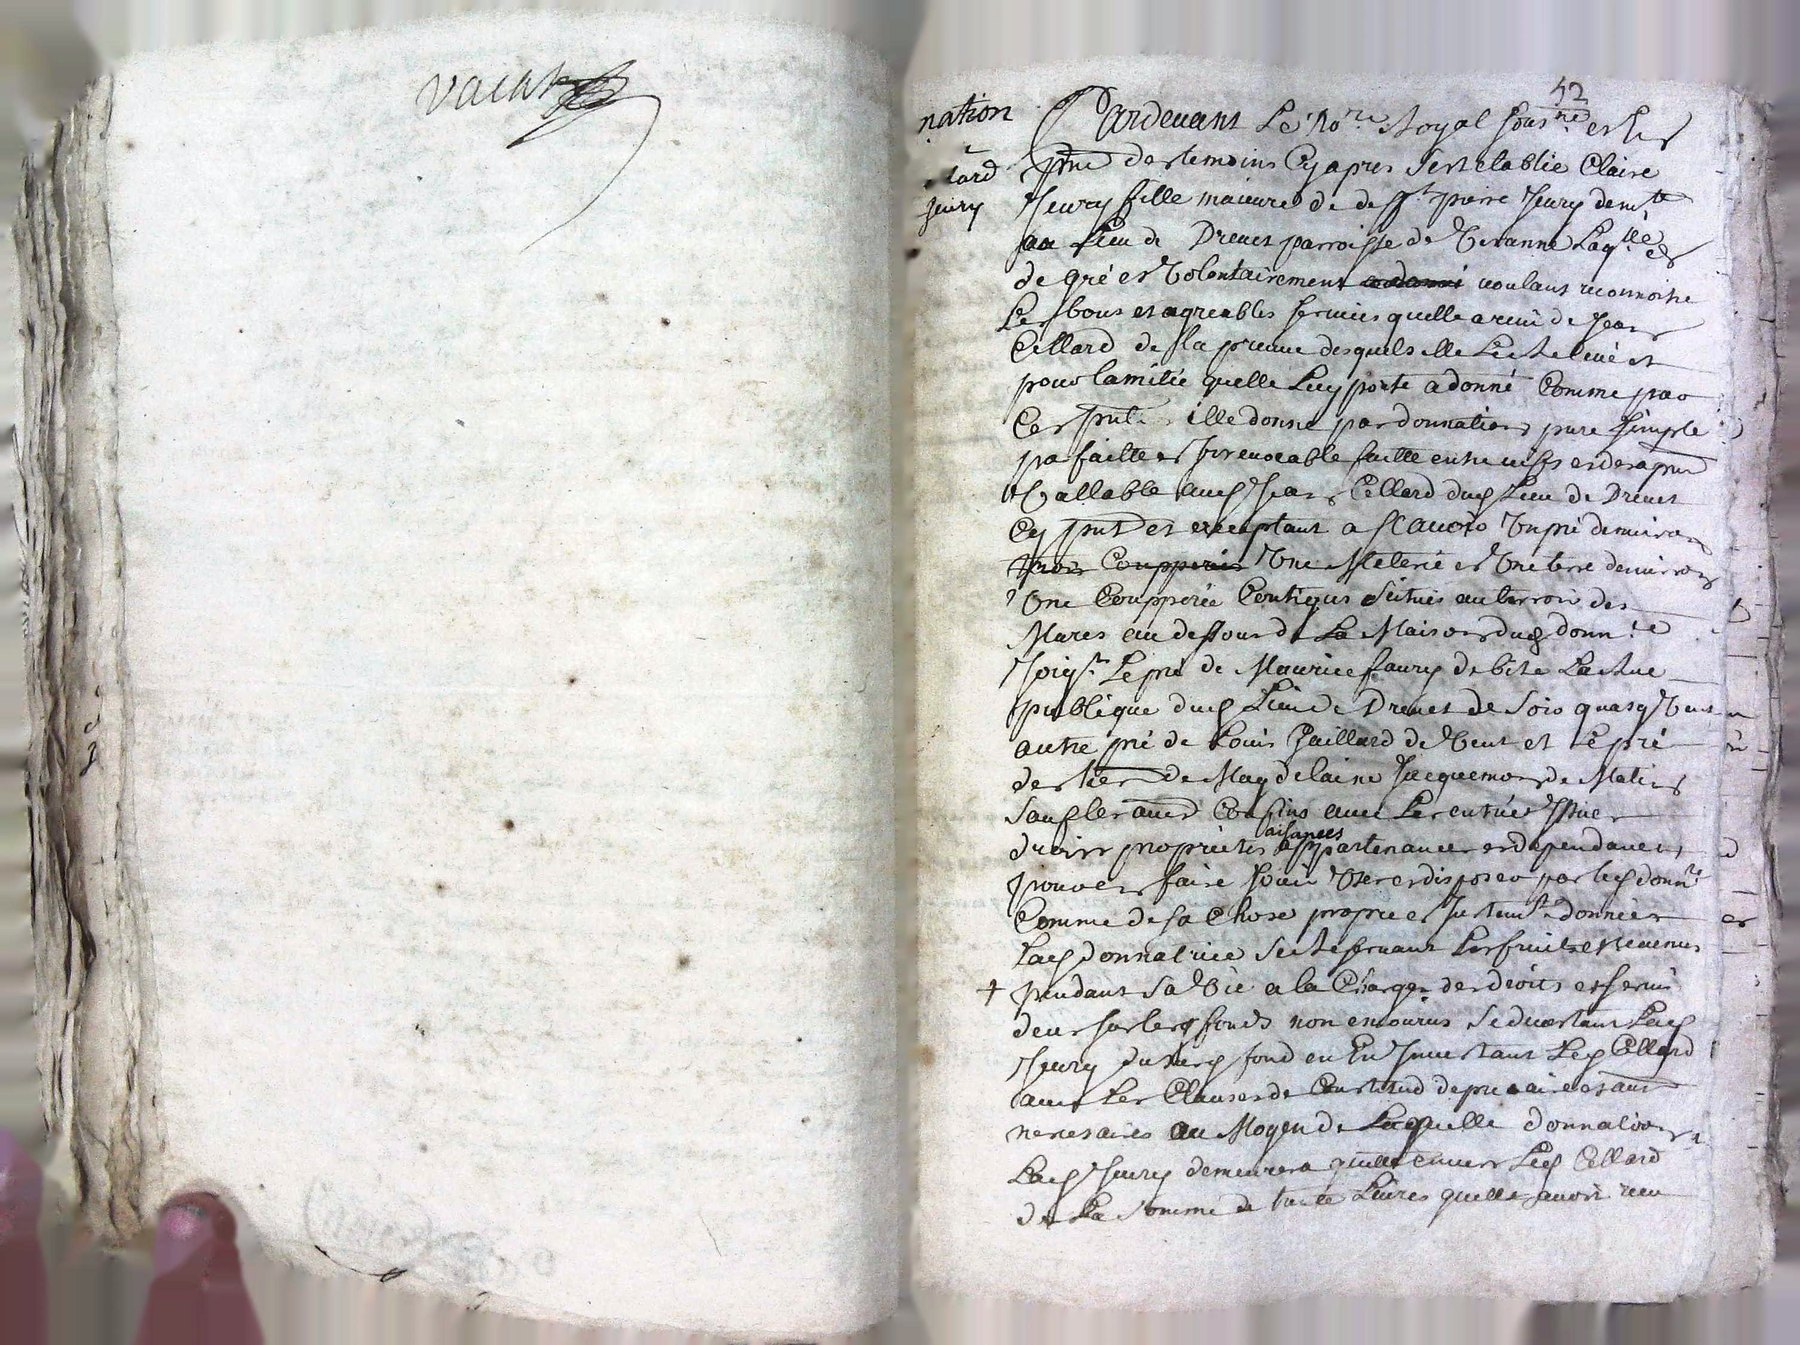 vacat
52
nation
lard
fleury
Pardevant Le no.re Royal sous.né et en
pnce des temoins Cy apres s'est etablie Claire
fleury fille majeure de deff.t pierre fleury dem.te
au Lieu de Dreuet parroisse de Laq.lle
de gré et volontairement voulant reconnoitre
Les bons et agreables services quelle a receu de Jean
Cellard de la preuve desquels elle Le releve et
pour lamitié quelle Luy porte a donné Comme par
Ces pntes elle donne par donnation pure simple
parfaitte et Irrevocable faitte entre vifs et des apnt
Vallable aud Jean Cellard dud Lieu de Dreuet
Cy pnt et acceptant a scavoir Un pré denviron
trois Coupperées Une Meterée et Une terre denviron
Une Coupperée Contigus scitués au terroir des
Mares au dessous de La Maison dud donn.re
Joig.t Le pré de Maurice faury de bize La Rue
publique dud Lieu de Dreuet de soir quasy Vent
autre pré de Louis Gaillard de Vent et Le pré
des hers de Magdelaine Jacquemon de Matin
sauf les autres Confins avec Les entrées Issues
droits proprietés aisances appartenances et dependances
pouvoir faire jouir User et disposer par led donn.re
Comme de sa Chose propre et Justem.t donnée
Lad donnatrice se reservant Les fruits et revenus
+ pendant sa Vie a la Charge des droits et servis
deus sur lesd fonds non encourus se devestant Lad
fleury dud fond en En Investant Led Cellard
avec Les Clauses de Constitud de precaire et autres
necesaires au Moyen de Laquelle donnation
Lad fleury demeurera quitte envers Led Cellard
de La somme de Livres quelle avoit receu